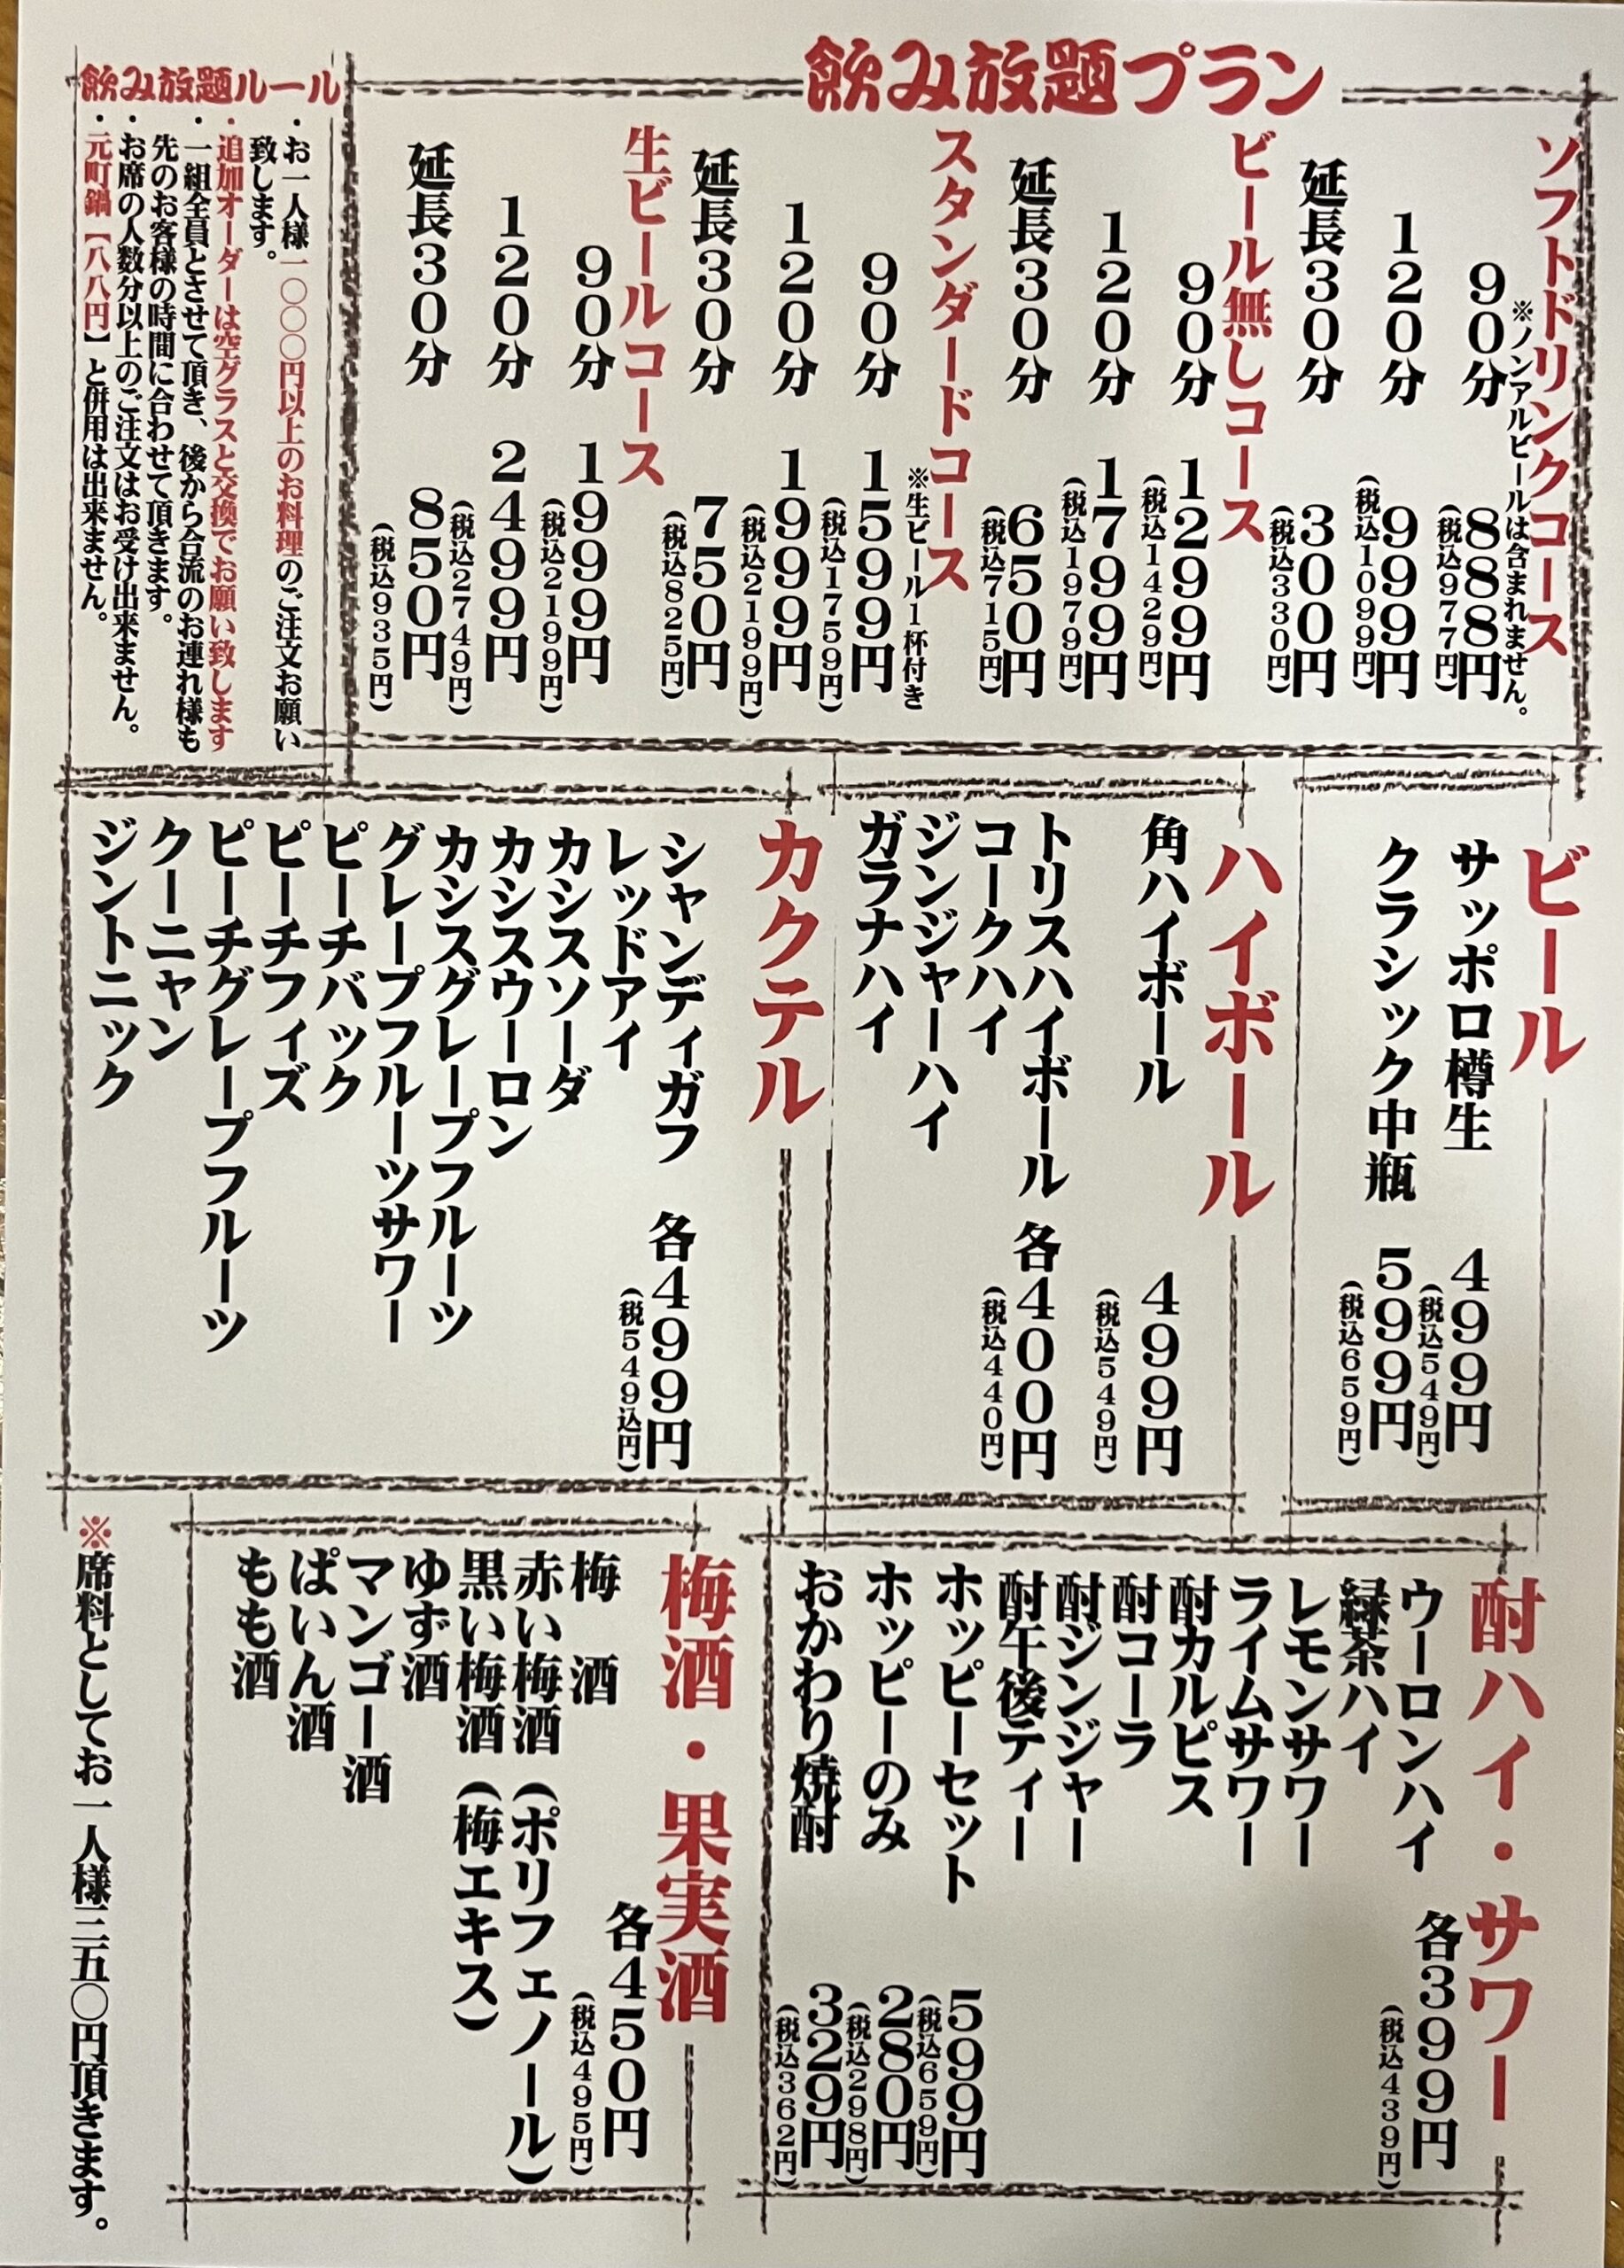 飲み放題プラン
ソフトドリンクコース
※ノンアルビールは含まれません。
90分 888円
(税込977円)
120分 999円
(税込1099円)
延長30分 300円
(税込330円)
ビール無しコース
90分 1299円
(税込1429円)
120分 1799円
(税込1979円)
延長30分 650円
(税込715円)
スタンダードコース
※生ビール1杯付き
90分 1599円
(税込1759円)
120分 1999円
(税込2199円)
延長30分 750円
(税込825円)
生ビールコース
90分 1999円
(税込2199円)
120分 2499円
(税込2749円)
延長30分 850円
(税込935円)
飲み放題ルール
・お一人様一〇〇〇円以上のお料理のご注文お願い
致します。
・追加オーダーは空グラスと交換でお願い致します
・一組全員とさせて頂き、後から合流のお連れ様も
先のお客様の時間に合わせて頂きます。
・お席の人数分以上のご注文はお受け出来ません。
・元町鍋【八八円】と併用は出来ません。
ビール
サッポロ樽生 499円
(税込549円)
クラシック中瓶 599円
(税込659円)
ハイボール
角ハイボール 499円
(税込549円)
トリスハイボール 各400円
(税込440円)
コークハイ
ジンジャーハイ
ガラナハイ
カクテル
シャンディガフ 各499円
(税549込円)
レッドアイ
カシスソーダ
カシスウーロン
カシスグレープフルーツ
グレープフルーツサワー
ピーチバック
ピーチフィズ
ピーチグレープフルーツ
クーニャン
ジントニック
酎ハイ・サワー
ウーロンハイ 各399円
(税込439円)
緑茶ハイ
レモンサワー
ライムサワー
酎カルピス
酎コーラ
酎ジンジャー
酎午後ティー
ホッピーセット 599円
(税込659円)
ホッピーのみ 280円
(税込298円)
おかわり焼酎 329円
(税込362円)
梅酒・果実酒
各450円
(税込495円)
梅 酒
赤い梅酒(ポリフェノール)
黒い梅酒(梅エキス)
ゆず酒
マンゴー酒
ぱいん酒
もも酒
※席料としてお一人様三五〇円頂きます。